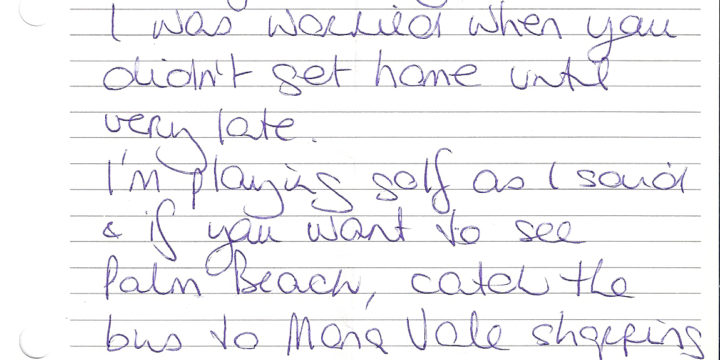 I was worried when you
didn't get home until
very late.
I'm playing golf as I said
& if you want to see
Palm Beach, catch the
bus to Mona Vale shopping